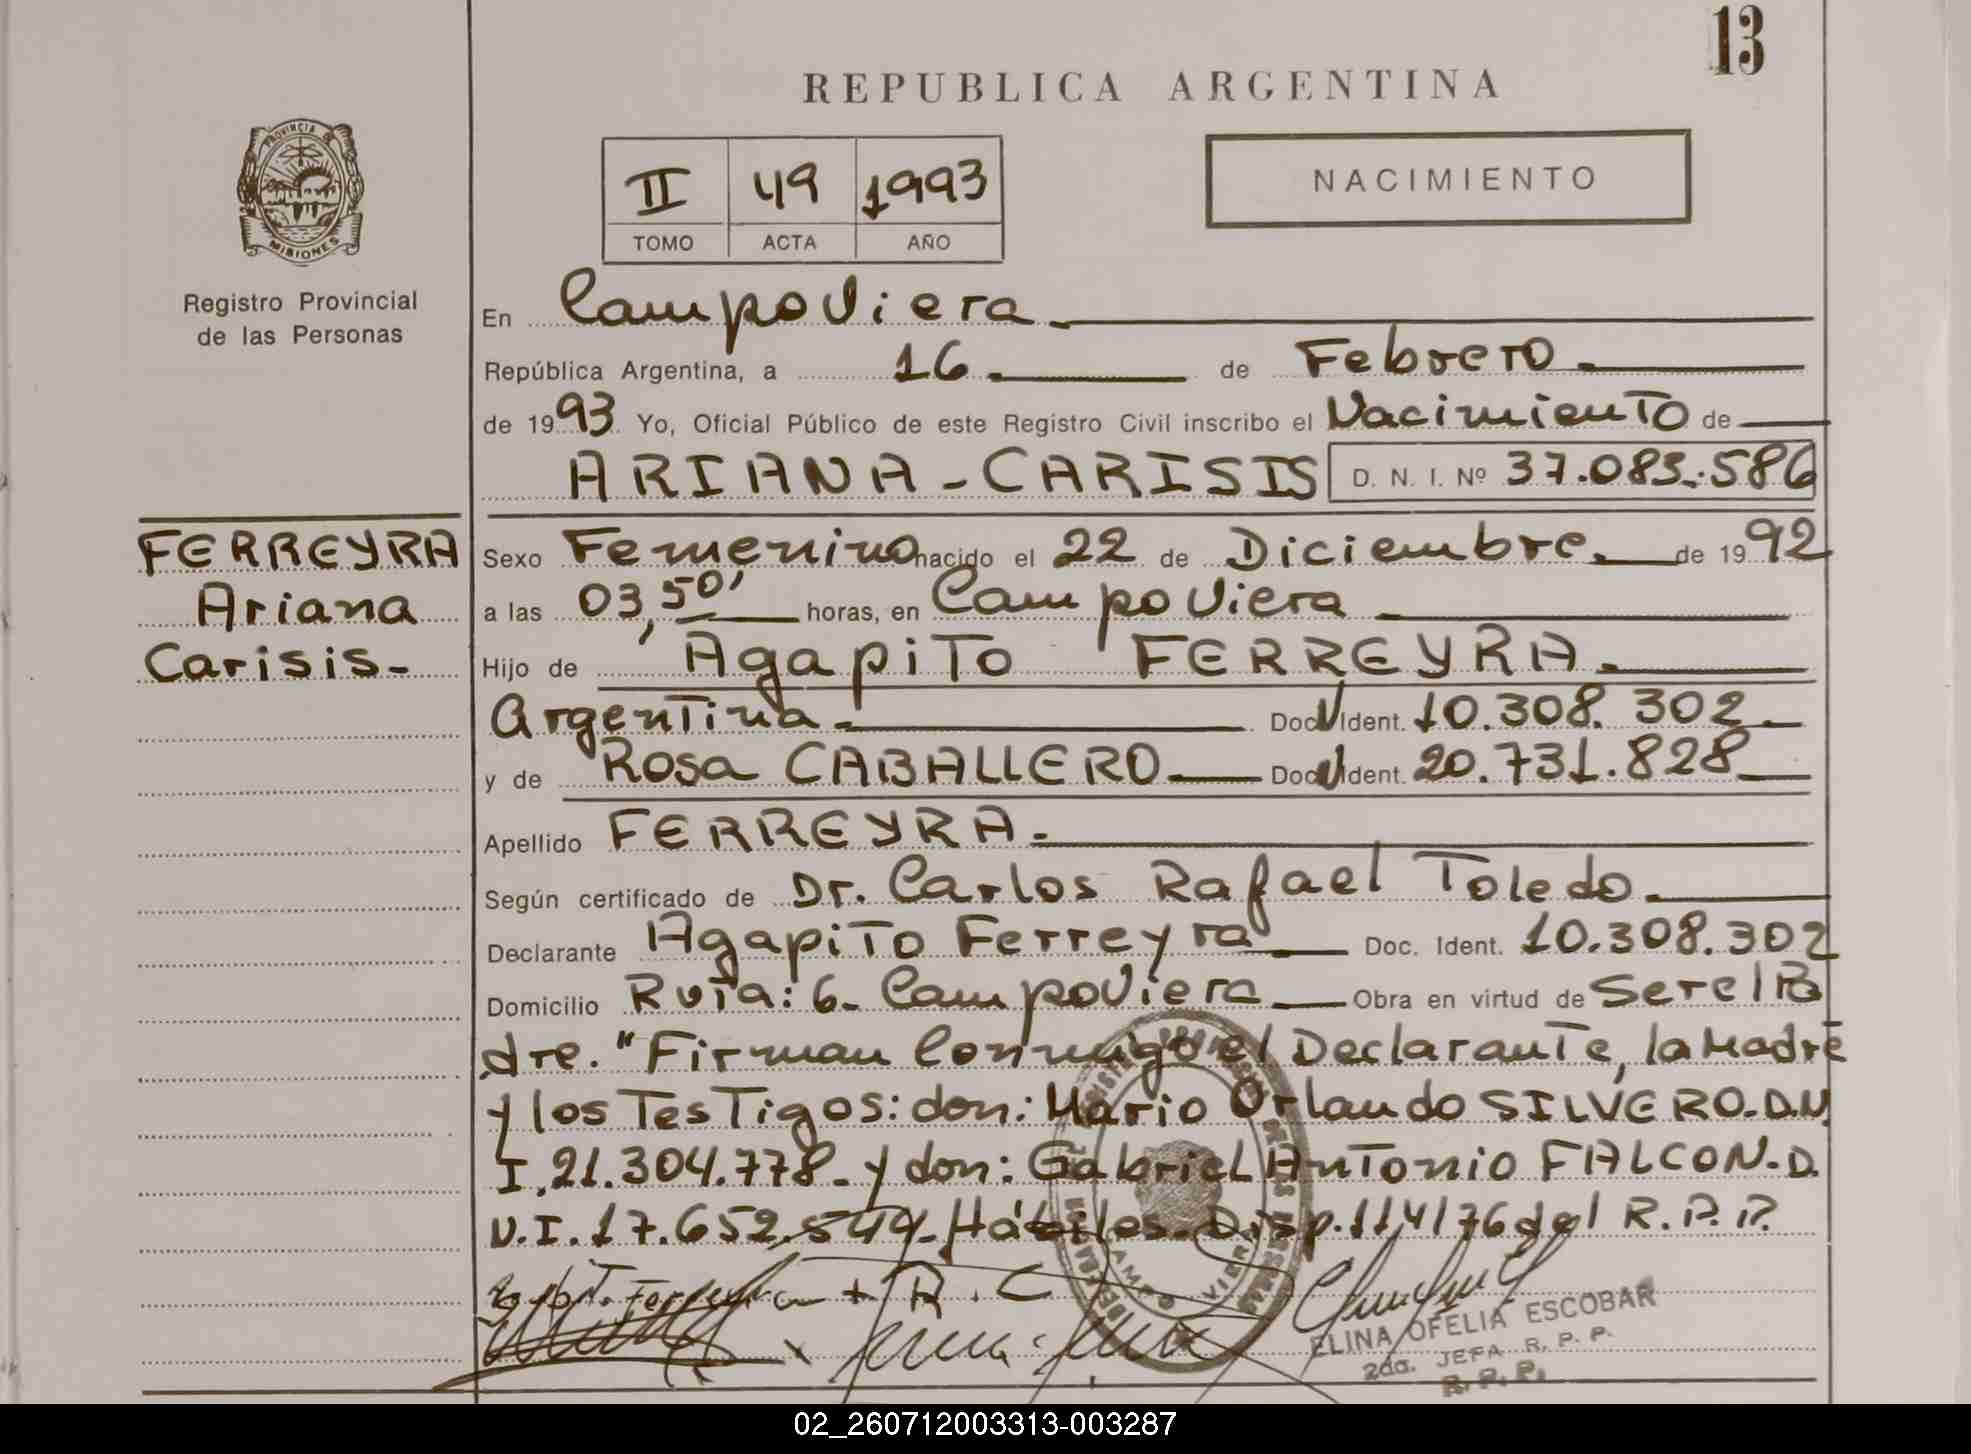 13
REPUBLICA ARGENTINA
PROVINCIA DE
MISIONES
Registro Provincial
de las Personas
II 49 1993
TOMO ACTA AÑO
NACIMIENTO
En Campo Viera
República Argentina, a 16 de Febrero
de 1993 Yo, Oficial Público de este Registro Civil inscribo el Nacimiento de
ARIANA-CARISIS D. N. I. Nº 37.083.586
FERREYRA
Ariana
Carisis-
Sexo Femenino nacido el 22 de Diciembre de 1992
a las 03,50' horas, en Campo Viera
Hijo de Agapito FERREYRA.
Argentina Doc. Ident. 10.308.302
y de Rosa CABALLERO Doc. Ident. 20.731.828
Apellido FERREYRA.
Según certificado de Dr. Carlos Rafael Toledo.
Declarante Agapito Ferreyra Doc. Ident. 10.308.302
Domicilio Ruta: 6. Campo Viera Obra en virtud de Ser el Pa
dre. "Firman Conmigo el Declarante, la Madre
y los Testigos: don: Mario Orlando SILVERO. D.N.
I. 21.304.778. y don: Gabriel Antonio FALCON. D.
N.I. 17.652.544. Hábiles. Disp. 114/76 del R.P.P.
Ferreyra + R. C
ELINA OFELIA ESCOBAR
2da. JEFA R. P. P.
R. P. P.
02_260712003313-003287